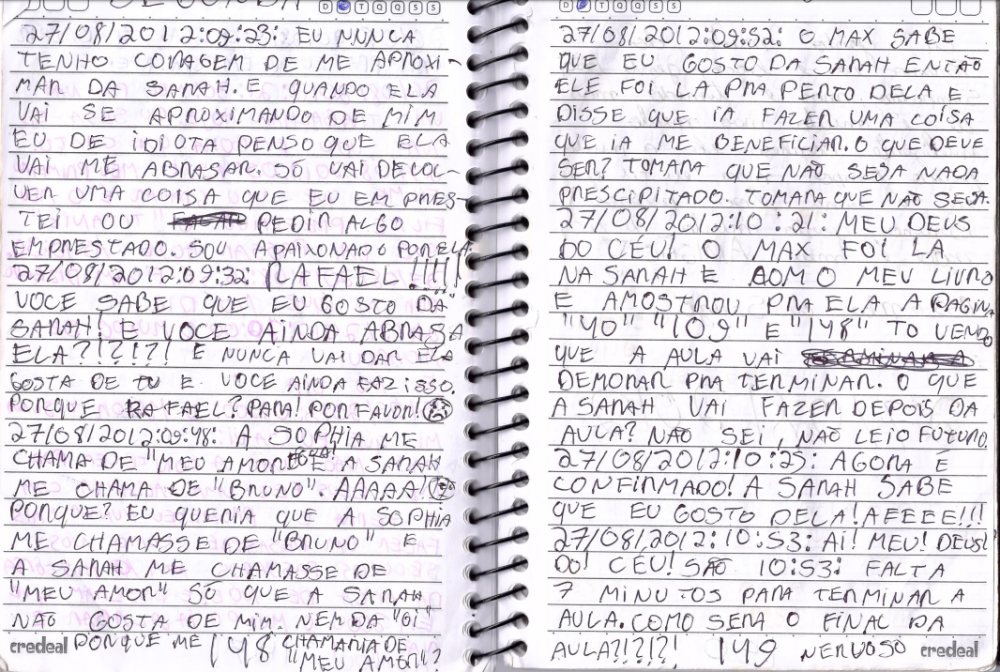 D Q Q S S
27/08/2012:09:23: EU NUNCA
TENHO CORAGEM DE ME APROXI-
MAR DA SARAH. E QUANDO ELA
VAI SE APROXIMANDO DE MIM
EU DE IDIOTA PENSO QUE ELA
VAI ME ABRASAR. SÓ VAI DEVOL-
VER UMA COISA QUE EU EMPRES-
TEI OU PEDIR ALGO
EMPRESTADO. SOU APAIXONADO POR ELA
27/08/2012:09:32: RAFAEL!!!!!
VOCE SABE QUE EU GOSTO DA
SARAH! E VOCE AINDA ABRASA
ELA?!?!?! E NUNCA VAI DAR ELA
GOSTA DE TU E VOCE AINDA FAZ ISSO.
PORQUE RAFAEL? PARA! POR FAVOR!
27/08/2012:09:48: A SOPHIA ME
CHAMA DE "MEU AMOR" E A SARAH
ME CHAMA DE "BRUNO". AAAAA!
PORQUE? EU QUERIA QUE A SOPHIA
ME CHAMASSE DE "BRUNO" E
A SARAH ME CHAMASSE DE
"MEU AMOR" SÓ QUE A SARAH
NÃO GOSTA DE MIM NEM DA "OI"
PORQUE ME CHAMARIA DE
"MEU AMOR"?
148
credeal
D Q Q S S
27/08/2012:09:52: O MAX SABE
QUE EU GOSTO DA SARAH ENTÃO
ELE FOI LA PRA PERTO DELA E
DISSE QUE IA FAZER UMA COISA
QUE IA ME BENEFICIAR. O QUE DEVE
SER? TOMARA QUE NÃO SEJA NADA
PRESCIPITADO. TOMARA QUE NÃO SEJA.
27/08/2012:10:21: MEU DEUS
DO CÉU! O MAX FOI LA
NA SARAH E COM O MEU LIVRO
E AMOSTROU PRA ELA A PAGINA
"40" "109" E "148" TO VENDO
QUE A AULA VAI
DEMORAR PRA TERMINAR. O QUE
A SARAH VAI FAZER DEPOIS DA
AULA? NÃO SEI, NÃO LEIO FUTURO
27/08/2012:10:25: AGORA É
CONFIRMADO! A SARAH SABE
QUE EU GOSTO DELA! AEEEE!!!
27/08/2012:10:53: AI! MEU! DEUS!
DO! CÉU! SÃO 10:53: FALTA
7 MINUTOS PARA TERMINAR A
AULA. COMO SERA O FINAL DA
AULA?!?!?! 149 NERVOSO
credeal